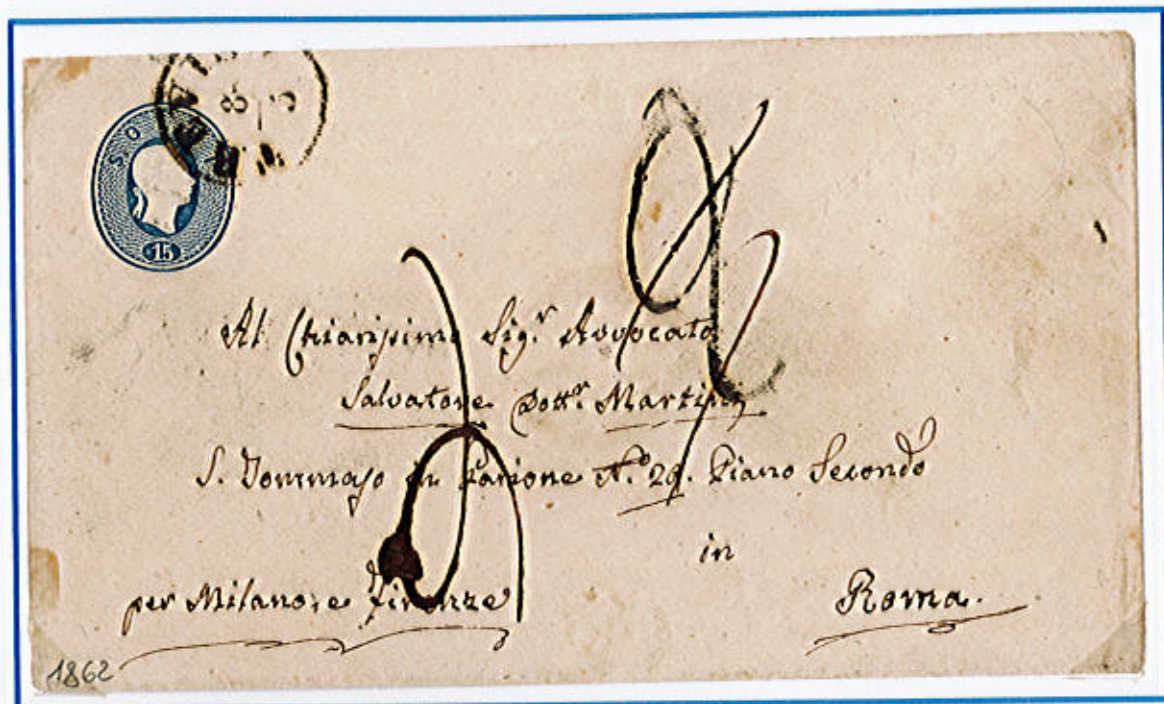 SO
15
8
Al Chiarissimo Sig.r Avvocato
Salvatore Dott.r Martini
S. Tommaso in Parione N.o 29. Piano Secondo
in
per Milano, e Firenze
Roma.
1862